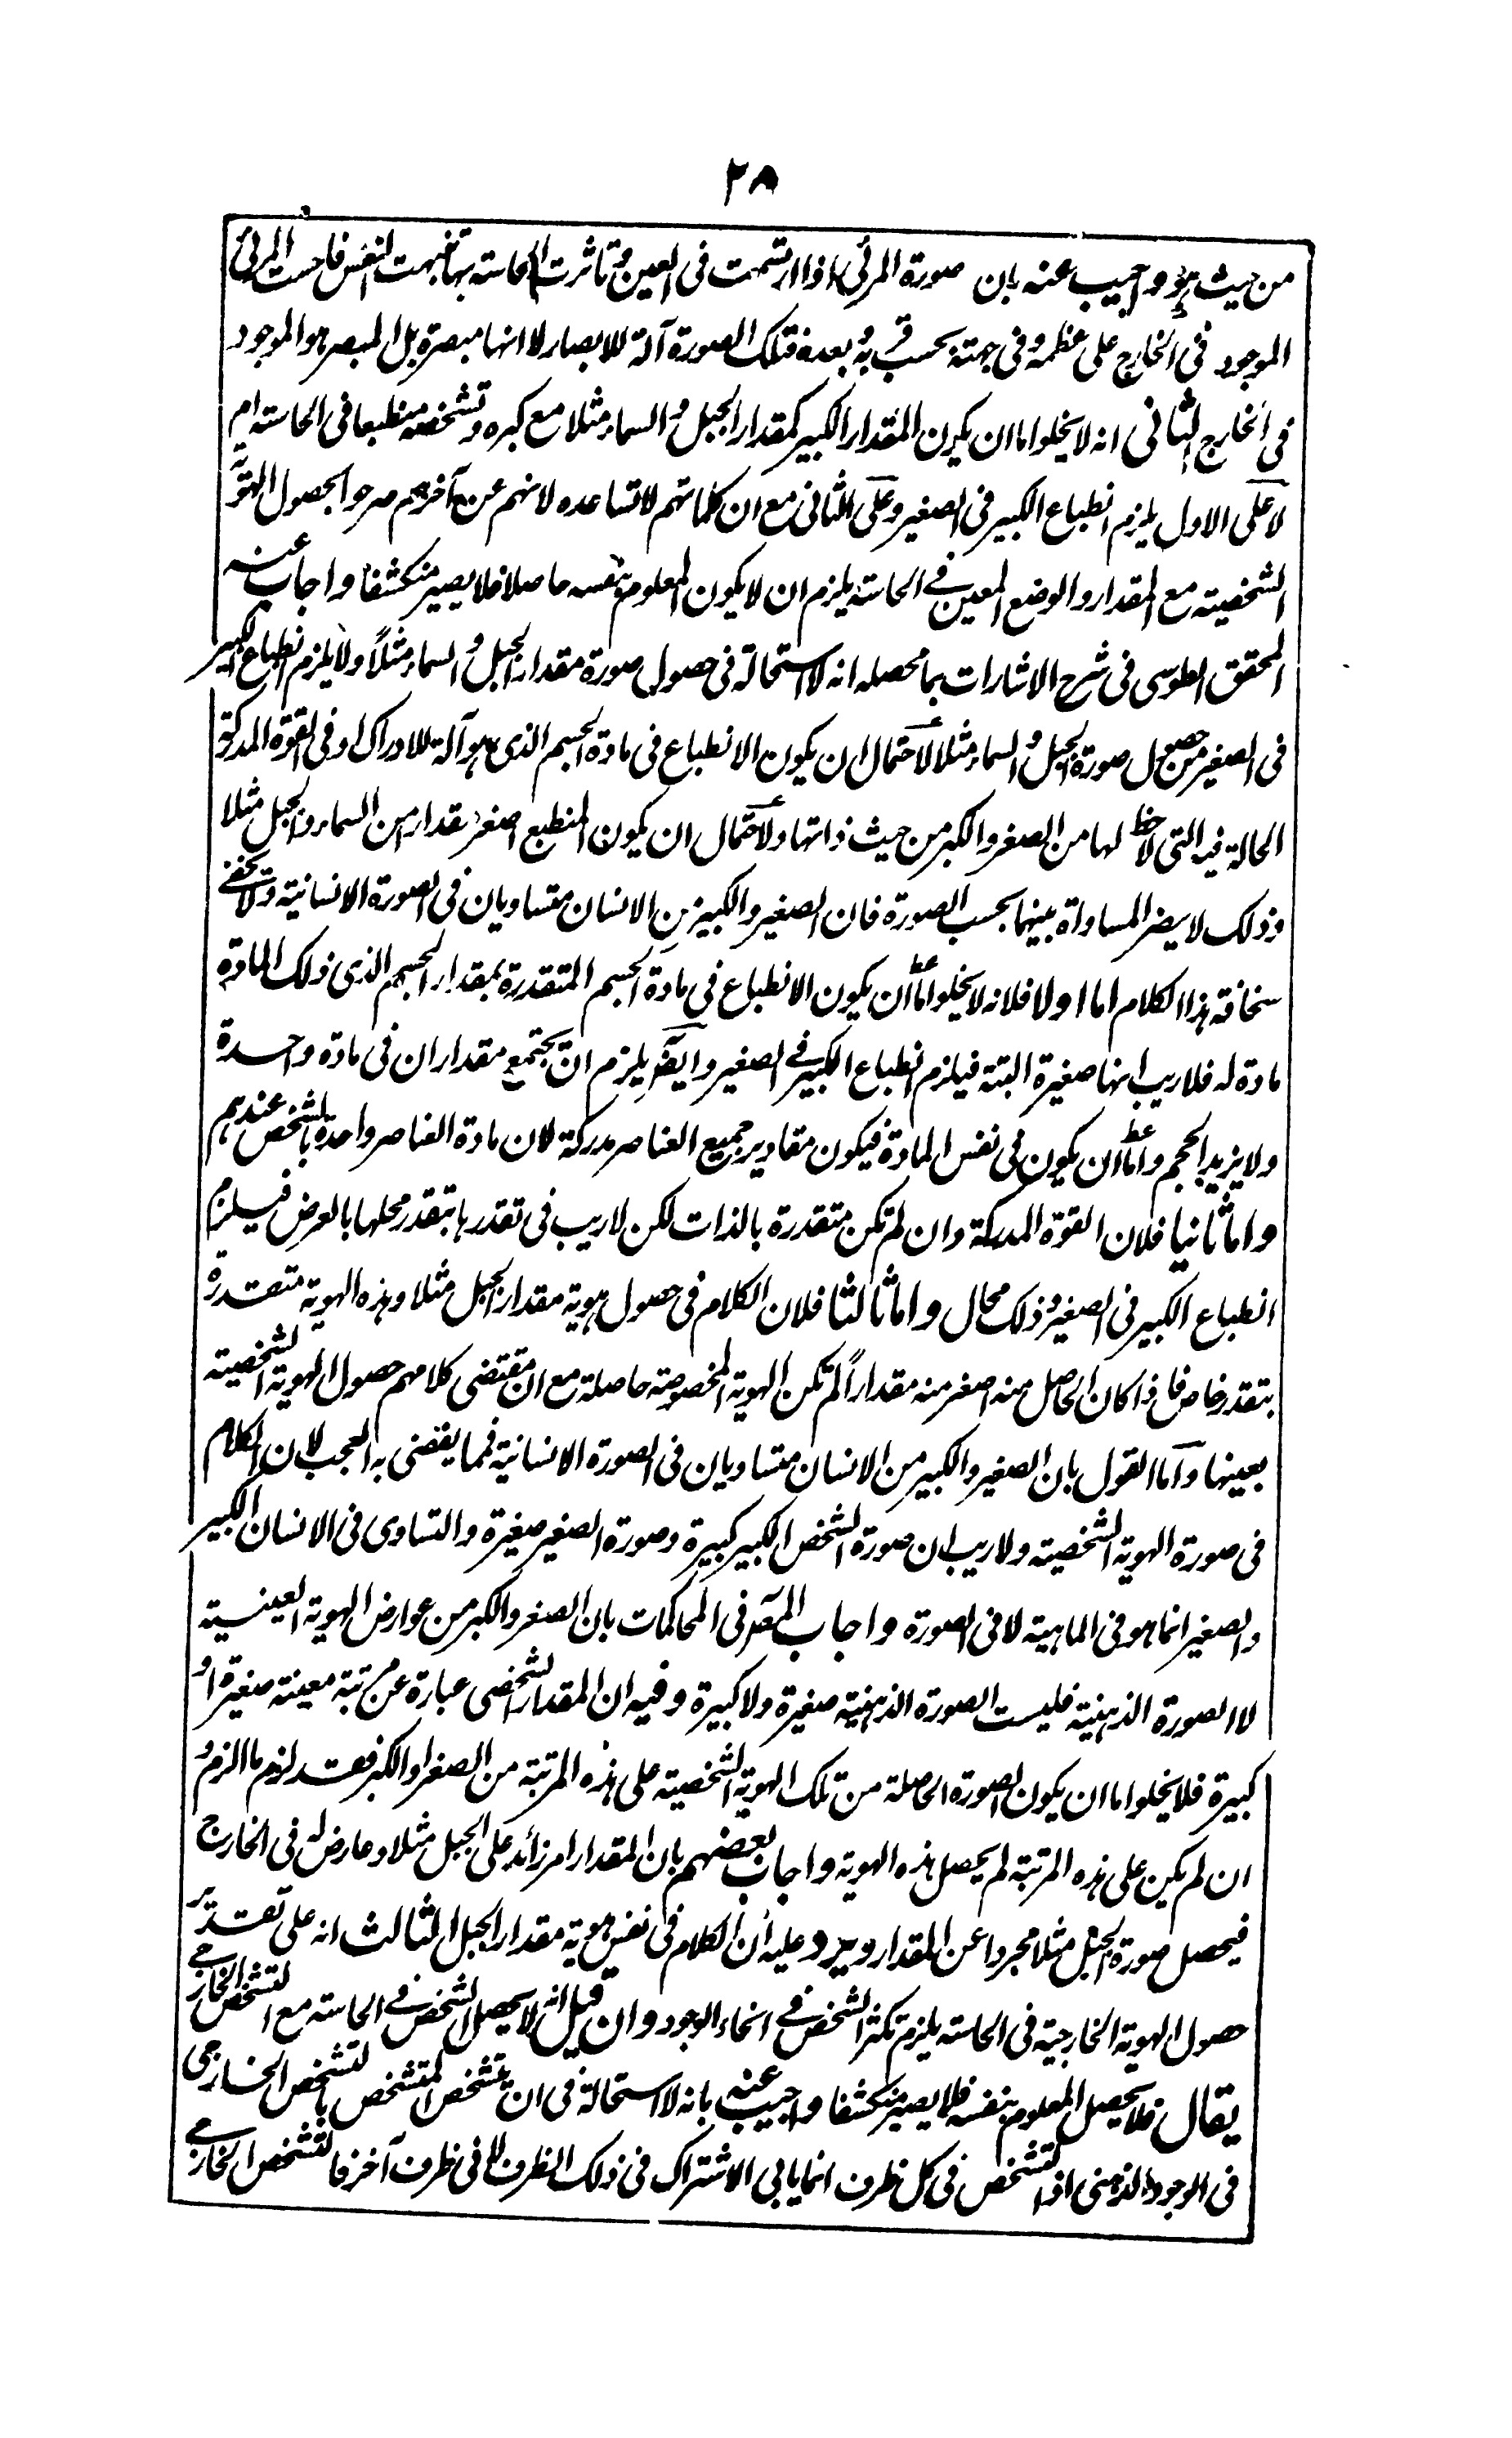 ٢٨
من حيث هو واجيب عنه بان صورة المرئى اذا ارتسمت فى العين وتاثرت الحاسة بها تنبهت النفس فاحست المرئى
الموجود فى الخارج على عظمه وفى جهته بحسب قربه وبعده فتلك الصورة آلة للابصار لا انها مبصرة بل المبصر هو الموجود
فى الخارج الثانى انه لا يخلو اما ان يكون المقدار الكبير كمقدار الجبل والسماء مثلا مع كبره وتشخصه منطبعا فى الحاسة ام
لا على الاول يلزم انطباع الكبير فى الصغير وعلى الثانى مع ان كلماتهم لا تساعده لانهم عن آخرهم صرحوا بحصول الهوية
الشخصية مع المقدار والوضع المعين فى الحاسة يلزم ان لا يكون المعلوم بنفسه حاصلا فلا يصير منكشفا واجاب عنه
المحقق الطوسى فى شرح الاشارات بما محصله انه لا استحالة فى حصول صورة مقدار الجبل والسماء مثلاً ولا يلزم انطباع الكبير
فى الصغير من حصول صورة الجبل والسماء مثلا لاحتمال ان يكون الانطباع فى مادة الجسم الذى هو آلة للادراك او فى القوة المدركة
الحالة فيه التى لا حظ لها من الصغر والكبر من حيث ذاتها ولاحتمال ان يكون المنطبع اصغر مقدارا من السماء والجبل مثلا
وذلك لا يضر المساواة بينهما بحسب الصورة فان الصغير والكبير من الانسان متساويان فى الصورة الانسانية ولا يخفى
سخافة هذا الكلام اما اولا فلانه لا يخلو اما ان يكون الانطباع فى مادة الجسم المتقدرة بمقدار الجسم الذى ذلك المادة
مادة له فلا ريب انها صغيرة البتة فيلزم انطباع الكبير فى الصغير وايضا يلزم ان يجتمع مقداران فى مادة واحدة
ولا يزيد الحجم واما ان يكون فى نفس المادة فيكون مقادير جميع العناصر مدركة لان مادة العناصر واحدة بالشخص عندهم
واما ثانيا فلان القوة المدركة وان لم تكن متقدرة بالذات لكن لا ريب فى تقدرها بتقدر محلها بالعرض فيلزم
انطباع الكبير فى الصغير وذلك محال واما ثالثا فلان الكلام فى حصول هوية مقدار الجبل مثلا وهذه الهوية متقدرة
بتقدر خاص فاذا كان الحاصل منه اصغر منه مقداراً لم تكن الهوية المخصوصة حاصلة مع ان مقتضى كلامهم حصول الهوية الشخصية
بعينها واما القول بان الصغير والكبير من الانسان متساويان فى الصورة الانسانية فمما يقضى به العجب لان الكلام
فى صورة الهوية الشخصية ولا ريب ان صورة الشخص الكبير كبيرة وصورة الصغير صغيرة والتساوى فى الانسان الكبير
والصغير انما هو فى الماهية لا فى الصورة واجاب المص فى المحاكمات بان الصغر والكبر من عوارض الهوية العينية
لا الصورة الذهنية فليست الصورة الذهنية صغيرة ولا كبيرة وفيه ان المقدار الشخصى عبارة عن مرتبة معينة صغيرة او
كبيرة فلا يخلو اما ان يكون الصورة الحاصلة من تلك الهوية الشخصية على هذه المرتبة من الصغر او الكبر فقد لزم ما الزم و
ان لم يكن على هذه المرتبة لم يحصل هذه الهوية واجاب بعضهم بان المقدار امر زائد على الجبل مثلا وعارض له فى الخارج
فيحصل صورة الجبل مثلا مجردا عن المقدار ويرد عليه ان الكلام فى نفس هوية مقدار الجبل الثالث انه على تقدير
حصول الهوية الخارجية فى الحاسة يلزم تكثر الشخص فى انحاء الوجود وان قيل انه لا يحصل الشخص فى الحاسة مع التشخص الخارجى
يقال فلا يحصل المعلوم بنفسه فلا يصير منكشفا واجيب عنه بانه لا استحالة فى ان يتشخص المتشخص بالتشخص الخارجى
فى الوجود الذهنى اذ التشخص فى كل ظرف انما يابى الاشتراك فى ذلك الظرف لا فى ظرف آخر فالتشخص الخارجى